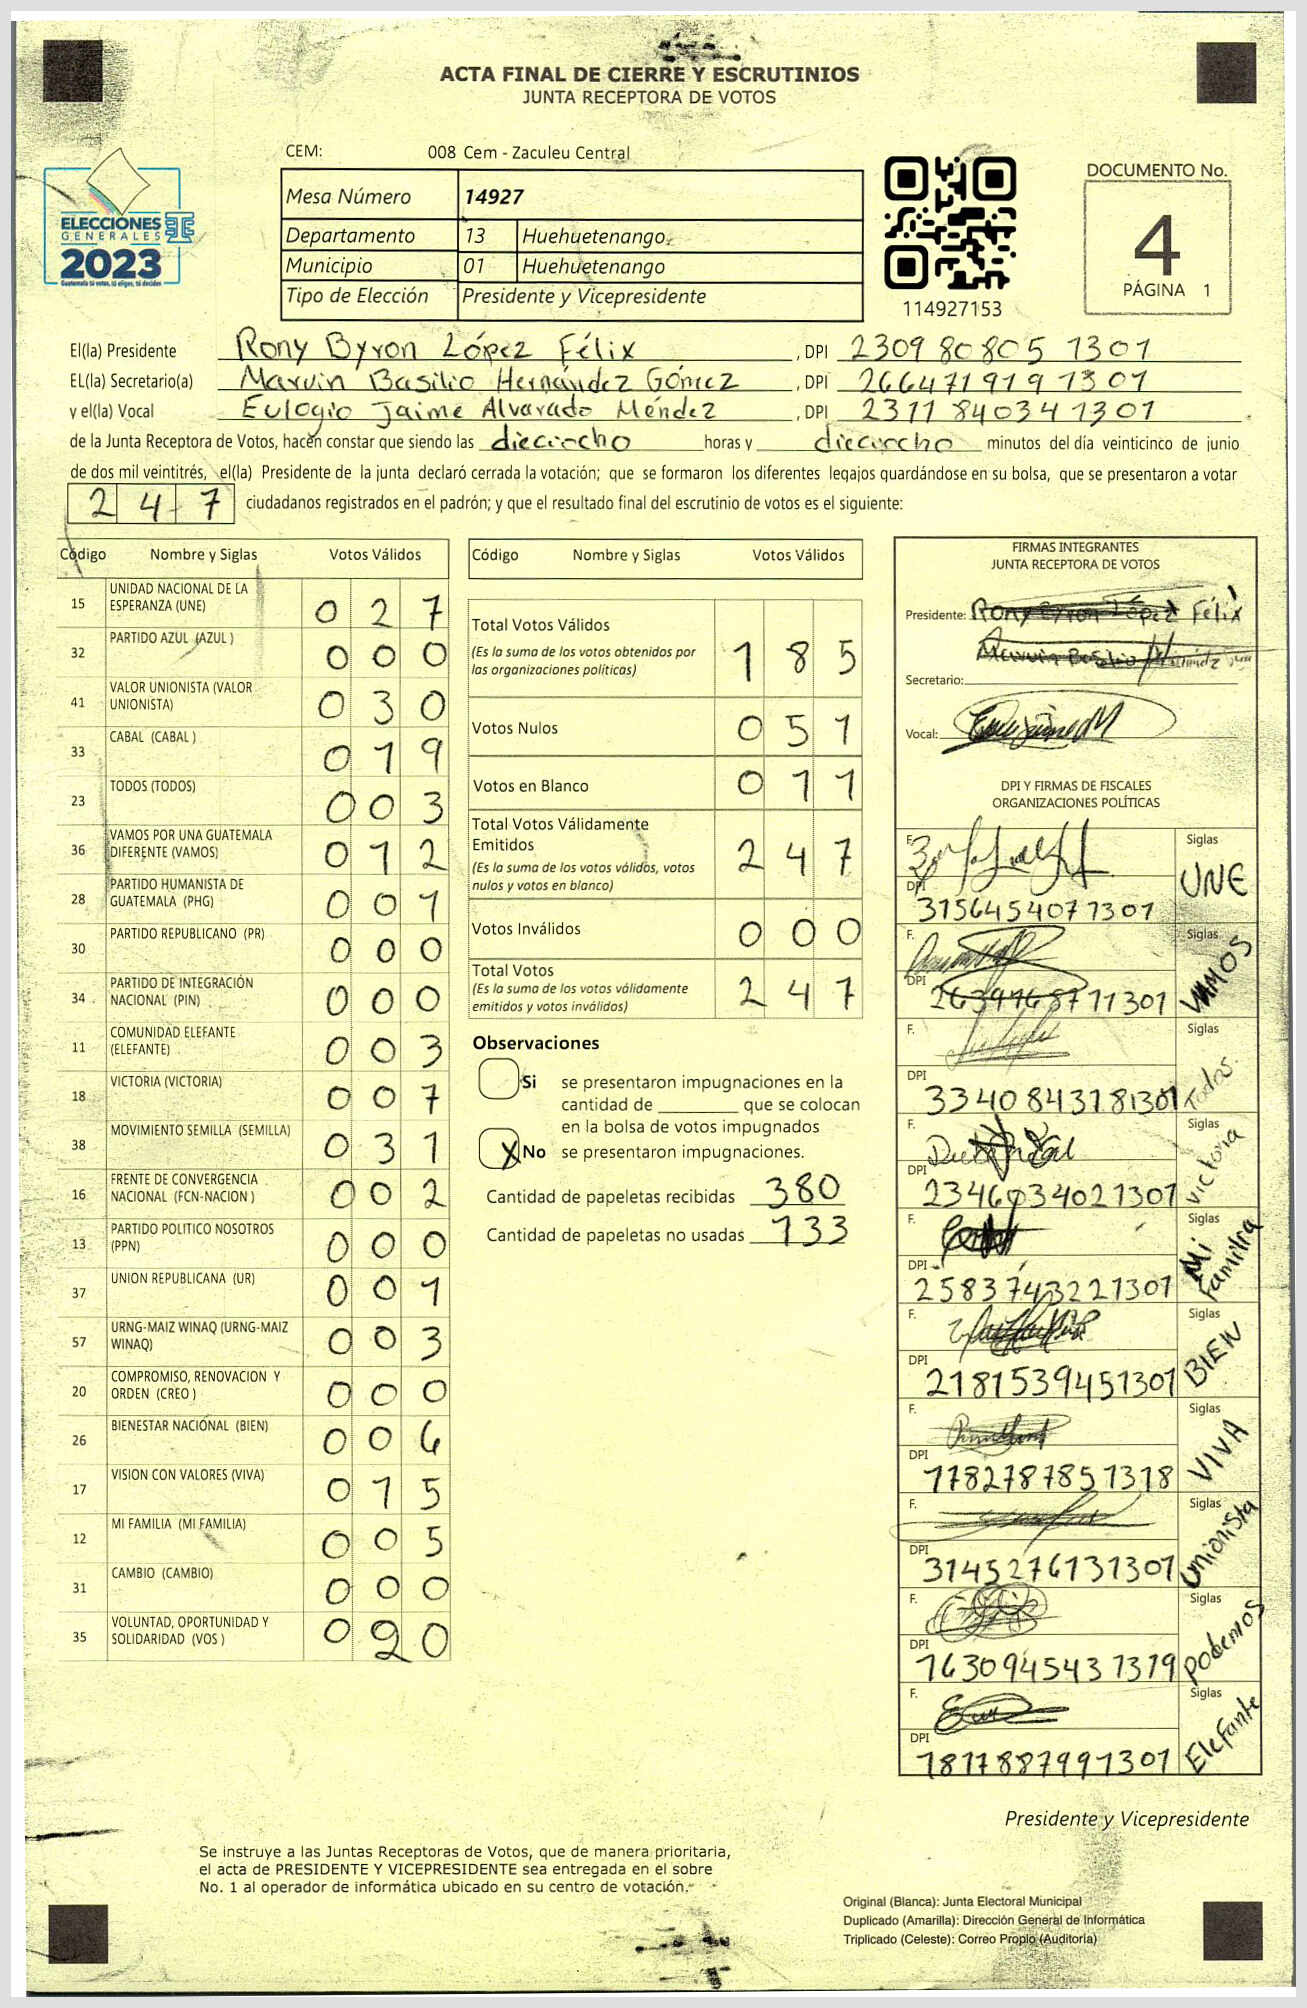 ACTA FINAL DE CIERRE Y ESCRUTINIOS
JUNTA RECEPTORA DE VOTOS
CEM: 008 Cem - Zaculeu Central
Mesa Número 14927
Departamento 13 Huehuetenango
Municipio 01 Huehuetenango
Tipo de Elección Presidente y Vicepresidente
ELECCIONES
GENERALES
2023
Guatemala tú votas, tú eliges, tú decides
114927153
DOCUMENTO No.
4
PÁGINA 1
El(la) Presidente Rony Byron López Félix , DPI 2309 80805 1301
EL(la) Secretario(a) Marvin Basilio Hernández Gómez , DPI 266471919 1301
y el(la) Vocal Eulogio Jaime Alvarado Méndez , DPI 2311 84034 1301
de la Junta Receptora de Votos, hacen constar que siendo las dieciocho horas y dieciocho minutos del día veinticinco de junio
de dos mil veintitrés, el(la) Presidente de la junta declaró cerrada la votación; que se formaron los diferentes legajos quardándose en su bolsa, que se presentaron a votar
247 ciudadanos registrados en el padrón; y que el resultado final del escrutinio de votos es el siguiente:
Código Nombre y Siglas Votos Válidos
15 UNIDAD NACIONAL DE LA ESPERANZA (UNE) 027
32 PARTIDO AZUL (AZUL ) 000
41 VALOR UNIONISTA (VALOR UNIONISTA) 030
33 CABAL (CABAL ) 019
23 TODOS (TODOS) 003
36 VAMOS POR UNA GUATEMALA DIFERENTE (VAMOS) 012
28 PARTIDO HUMANISTA DE GUATEMALA (PHG) 001
30 PARTIDO REPUBLICANO (PR) 000
34 PARTIDO DE INTEGRACIÓN NACIONAL (PIN) 000
11 COMUNIDAD ELEFANTE (ELEFANTE) 003
18 VICTORIA (VICTORIA) 007
38 MOVIMIENTO SEMILLA (SEMILLA) 031
16 FRENTE DE CONVERGENCIA NACIONAL (FCN-NACION ) 002
13 PARTIDO POLITICO NOSOTROS (PPN) 000
37 UNION REPUBLICANA (UR) 001
57 URNG-MAIZ WINAQ (URNG-MAIZ WINAQ) 003
20 COMPROMISO, RENOVACION Y ORDEN (CREO ) 000
26 BIENESTAR NACIONAL (BIEN) 006
17 VISION CON VALORES (VIVA) 015
12 MI FAMILIA (MI FAMILIA) 005
31 CAMBIO (CAMBIO) 000
35 VOLUNTAD, OPORTUNIDAD Y SOLIDARIDAD (VOS ) 020
Código Nombre y Siglas Votos Válidos
Total Votos Válidos 185
(Es la suma de los votos obtenidos por
las organizaciones políticas)
Votos Nulos 051
Votos en Blanco 011
Total Votos Válidamente
Emitidos 247
(Es la suma de los votos válidos, votos
nulos y votos en blanco)
Votos Inválidos 000
Total Votos 247
(Es la suma de los votos válidamente
emitidos y votos inválidos)
Observaciones
Si se presentaron impugnaciones en la
cantidad de ________ que se colocan
en la bolsa de votos impugnados
X No se presentaron impugnaciones.
Cantidad de papeletas recibidas 380
Cantidad de papeletas no usadas 133
FIRMAS INTEGRANTES
JUNTA RECEPTORA DE VOTOS
Presidente: Rony Byron López Félix
Marvin Basilio
Secretario:
Vocal:
DPI Y FIRMAS DE FISCALES
ORGANIZACIONES POLÍTICAS
F. Siglas UNE
DPI 3156454071301
F. Siglas VAMOS
DPI 2639768711301
F. Siglas Todos
DPI 3340843781301
F. Siglas Victoria
DPI 2346034021301
F. Siglas Mi Familia
DPI 2583743221301
F. Siglas BIEN
DPI 2181539451301
F. Siglas VIVA
DPI 1782787851318
F. Siglas Unionista
DPI 3145276131301
F. Siglas Podemos
DPI 1630945431319
F. Siglas Elefante
DPI 1817887991301
Presidente y Vicepresidente
Se instruye a las Juntas Receptoras de Votos, que de manera prioritaria,
el acta de PRESIDENTE Y VICEPRESIDENTE sea entregada en el sobre
No. 1 al operador de informática ubicado en su centro de votación.
Original (Blanca): Junta Electoral Municipal
Duplicado (Amarilla): Dirección General de Informática
Triplicado (Celeste): Correo Propio (Auditoría)